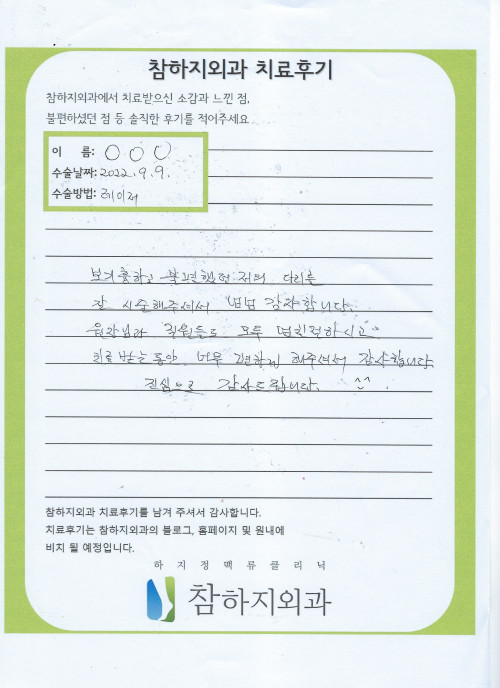 참하지외과 치료후기
참하지외과에서 치료받으신 소감과 느낀 점,
불편하셨던 점 등 솔직한 후기를 적어주세요
이 름: ○○○
수술날짜: 2022. 9. 9.
수술방법: 레이저
보기흉하고 불편했던 저의 다리를
잘 시술해주셔서 넘넘 감사합니다.
원장님과 직원들도 모두 넘친절하시고
치료 받는 동안 너무 편하게 해주셔서 감사합니다.
진심으로 감사드립니다. ^^.
참하지외과 치료후기를 남겨 주셔서 감사합니다.
치료후기는 참하지외과의 블로그, 홈페이지 및 원내에
비치 될 예정입니다.
하지정맥류클리닉
참하지외과